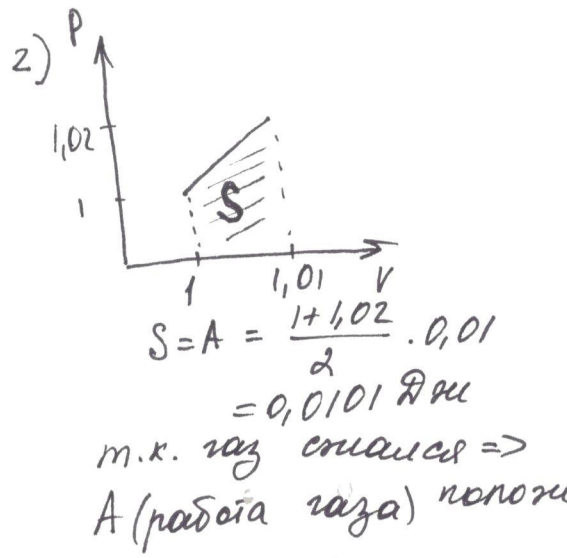 2)
P
1,02
1
S
1
1,01
V
S = A = (1+1,02)/2 · 0,01
= 0,0101 Дж
т.к. газ сжался =>
A (работа газа) полож